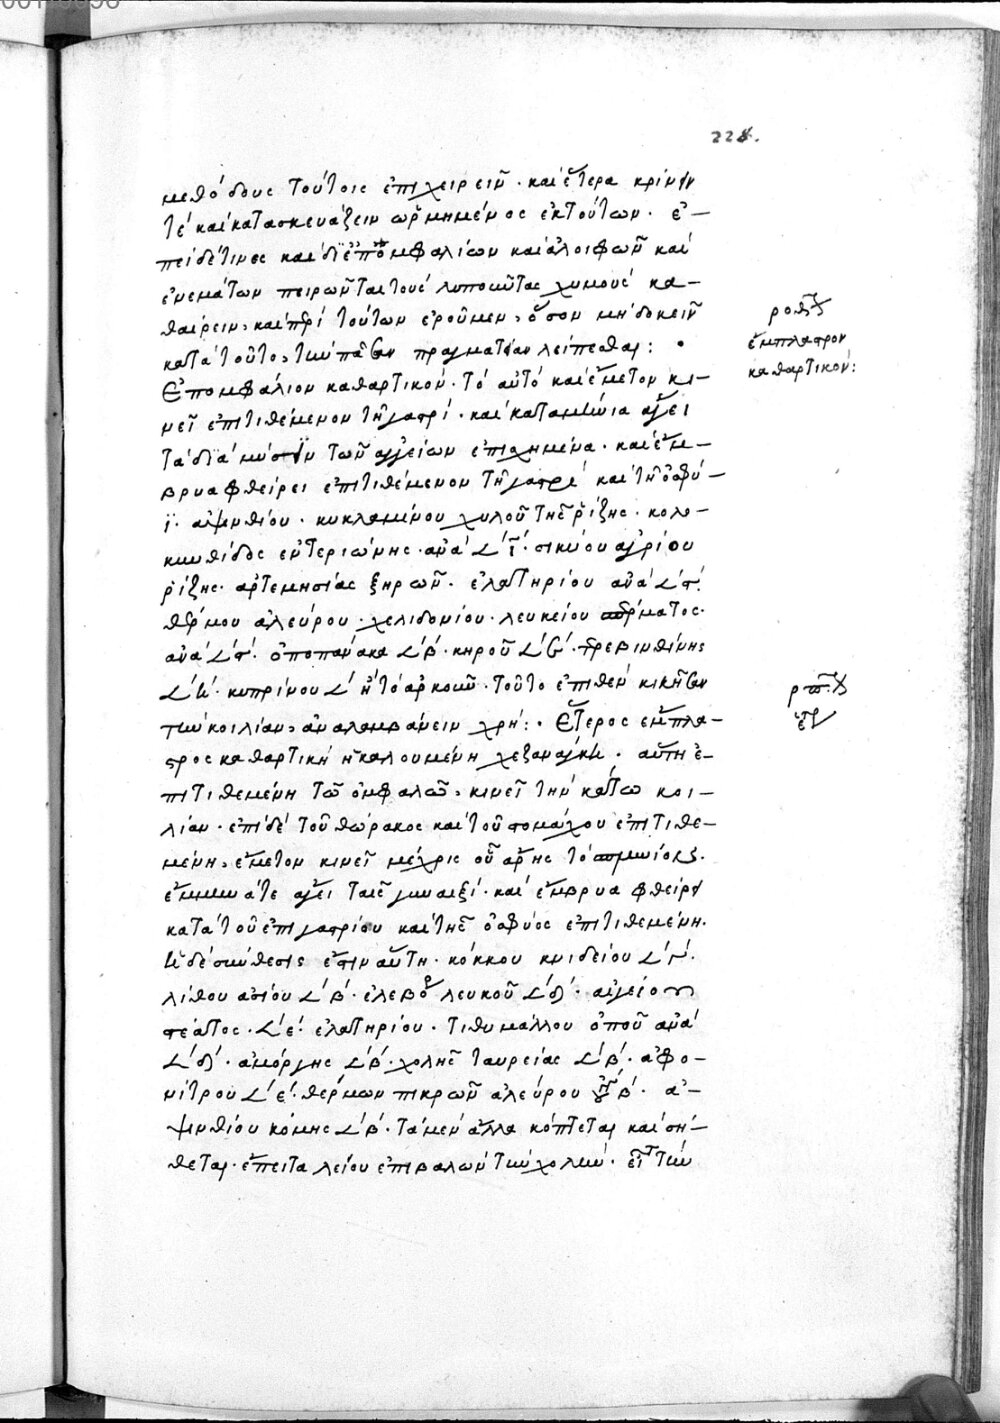 228.
μεθόδους τούτοις ἐπιχειρεῖν · καὶ ἕτερα κρίνειν
τὲ καὶ κατασκευάζειν ὡρμημένος ἐκ τούτων · ἐ-
πεὶ δέ τινες καὶ δι' ἐπομφαλίων καὶ ἀλοιφῶν καὶ
ἐνεμάτων πειρῶνται τοὺς λυποῦντας χυμοὺς κα-
θαίρειν, καὶ περὶ τούτων ἐροῦμεν, ὅσον μὴ δοκεῖν
κατὰ τοῦτο, τὴν πᾶσαν πραγματείαν λείπεσθαι : ·
ροθον
ἔμπλαστρον
καθαρτικόν :
Ἐπομφάλιον καθαρτικόν · τὸ αὐτὸ καὶ ἔμετον κι-
νεῖ ἐπιτιθέμενον τῇ γαστρί · καὶ καταμήνια ἄγει
τὰ διὰ μύσιν τῶν ἀγγείων ἐπισχημένα · καὶ ἔμ-
βρυα φθείρει ἐπιτιθέμενον τῇ γαστρὶ καὶ τῇ ὀσφύ-
ϊ · ἀψινθίου · κυκλαμίνου χυλοῦ τῆς ῥίζης · κολο-
κυνθίδος ἐντεριώνης · ἀνὰ ∠ ί · σικύου ἀγρίου
ῥίζης · ἀρτεμησίας ξηρῶν · ἐλατηρίου ἀνὰ ∠ ϛ ·
θέρμου ἀλεύρου · χελιδονίου · λευκείου σπέρματος ·
ἀνὰ ∠ ϛ · ὀποπανάκα ∠ β · κηροῦ ∠ · τρεβινθίνης
∠ η · κυπρίνου ∠ ἢ τὸ ἀρκοῦν · τοῦτο ἐπιθεὶν κικῆσαν
τὴν κοιλίαν, ἀναλαμβάνειν χρή : · Ἕτερος ἔμπλα-
στρος καθαρτικὴ ἡ καλουμένη χεζανάγκη · αὕτη ἐ-
πιτιθεμένη τῶ ὀμφαλῶ, κινεῖ τὴν κάτω κοι-
λίαν · ἐπὶ δὲ τοῦ θώρακος καὶ τοῦ στομάχου ἐπιτιθε-
μένη, ἔμετον κινεῖ μέχρις οὗ ἄρης τὸ
ἔμμηνά τε ἄγει ταῖς γυναιξί · καὶ ἔμβρυα φθείρει
κατὰ τοῦ ἐπιγαστρίου καὶ τῆς ὀσφύος ἐπιτιθεμένη ·
ἡ δὲ σύνθεσις ἔστιν αὕτη · κόκκου κνιδείου ∠ ·
λίθου ἀσίου ∠ β · ἐλεβόρου λευκοῦ ∠ δ · αἰγείου
στέατος · ∠ ε · ἐλατηρίου · τιθυμάλλου ὀποῦ ἀνὰ
∠ δ · ἀμόργης ∠ β · χολῆς ταυρείας ∠ β · ἀφρο-
νίτρου ∠ ε · θέρμων πικρῶν ἀλεύρου β · ἀ-
ψινθίου κόμης ∠ β · τὰ μὲν ἄλλα κόπτεται καὶ σή-
θεται · ἔπειτα λείου ἐπιβαλὼν τὴν χολήν · εἶτα τὴν